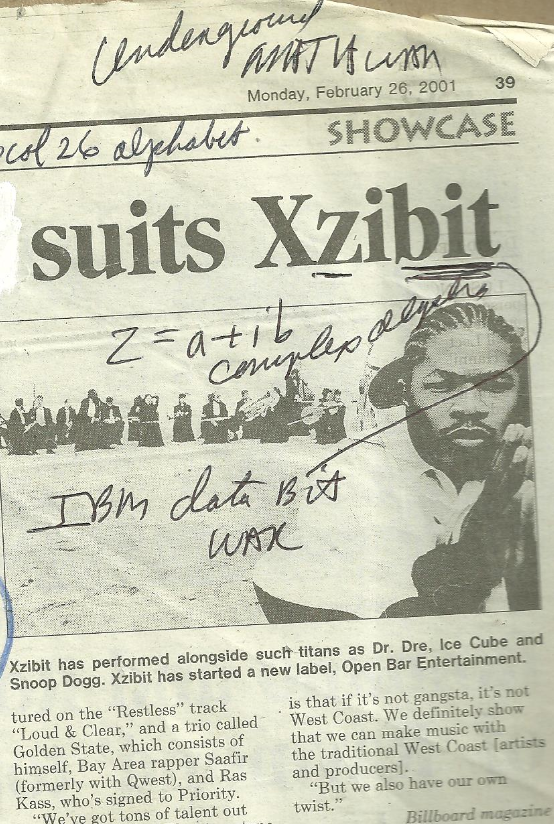 Underground
MATH WAR
Monday, February 26, 2001 39
col 26 alphabet.
SHOWCASE
suits Xzibit
Z = a + ib
complex algebra
IBM data Bit
WAR
Xzibit has performed alongside such titans as Dr. Dre, Ice Cube and
Snoop Dogg. Xzibit has started a new label, Open Bar Entertainment.
tured on the “Restless” track
“Loud & Clear,” and a trio called
Golden State, which consists of
himself, Bay Area rapper Saafir
(formerly with Qwest), and Ras
Kass, who's signed to Priority.
“We've got tons of talent out
is that if it's not gangsta, it's not
West Coast. We definitely show
that we can make music with
the traditional West Coast [artists
and producers].
“But we also have our own
twist.”
Billboard magazine